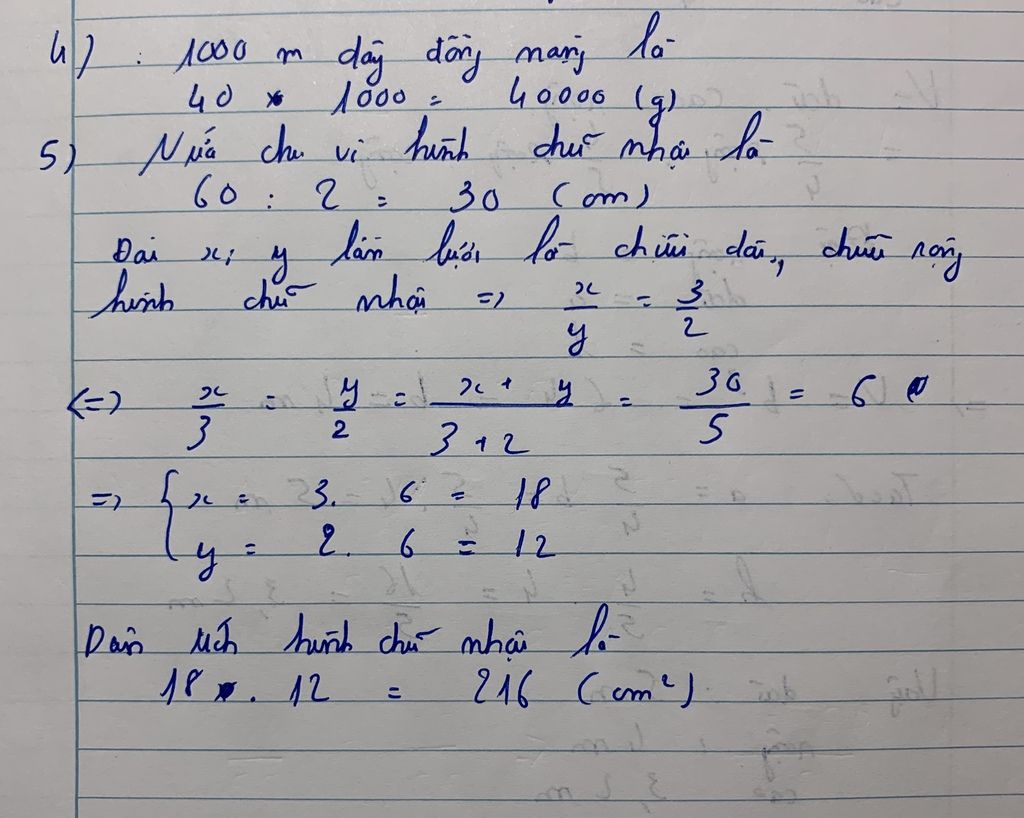 4) : 1000 m dây đồng nặng là
40 × 1000 = 40000 (g)
5) Nửa chu vi hình chữ nhật là
60 : 2 = 30 (cm)
Đặt x; y lần lượt là chiều dài, chiều rộng
hình chữ nhật => x/y = 3/2
<=> x/3 = y/2 = (x + y)/(3 + 2) = 30/5 = 6
=> { x = 3. 6 = 18
y = 2. 6 = 12
Diện tích hình chữ nhật là
18 . 12 = 216 (cm²)